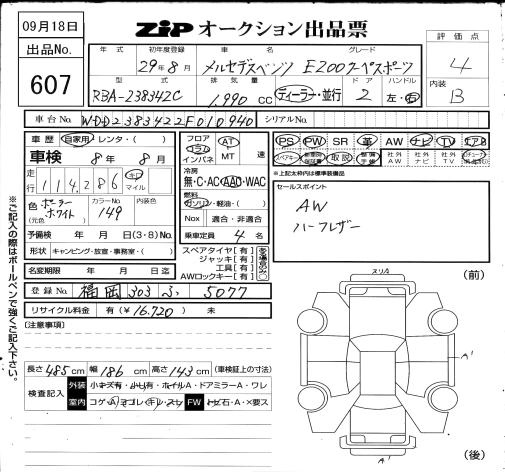 09月18日
ZIP オークション出品票
出品No.
607
年式 初年度登録 車名 グレード
29年8月 メルセデスベンツ E200クーペスポーツ
型式 排気量 ドア ハンドル
RBA-238342C 1,990 cc ディーラー・並行 2 左・右
評価点
4
内装
B
車台No. WDD2383422F010940 シリアルNo.
車歴 自家用・レンタ・( )
車検 8年 8月
走行 114,286 キロ マイル
色 ポーラーホワイト カラーNo. 149 内装色
(元色)
予備検 年 月 日(3・8)No.
形状 キャンピング・放宣・事務室・( )
名変期限 年 月 日迄
フロア コラム インパネ AT MT 速
冷房 無・C・AC・AAC・WAC
燃料 ガソリン・軽油・( )
Nox 適合・非適合
乗車定員 4 名
スペアタイヤ[有]
ジャッキ[有]
工具[有]
AWロックキー[有]
PS PW SR 革 AW ナビ TV エアB
スペアキー 取説 社外AW 社外ナビ 社外TV
*上記太枠内は標準装備品
セールスポイント
AW
ハーフレザー
登録No. 福岡 303 ふ 5077
リサイクル料金 有(¥16,720) 未
[注意事項]
長さ485cm 幅186cm 高さ143cm (車検証上の寸法)
検査記入 外装 小キズ有・小凹有・ホイルA・ドアミラーA・ワレ
室内 コゲ・A・ヨゴレ・キレ・スレ FW トビ石・A・×要ス
※ご記入の際はボールペンで強くご記入下さい。
スリA
(前)
A'
A'
(後)